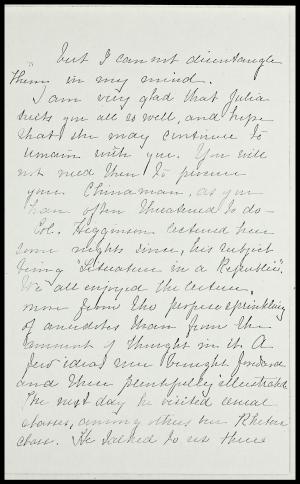 but I can not disentangle
them in my mind.
I am very glad that Julia
suits you all so well, and hope
that she may continue to
remain with you. You will
not need then to procure
your Chinaman, as you
have often threatened to do.
Col. Higginson lectured here
some nights since, his subject
being "Literature in a Republic".
We all enjoyed the lecture,
more from the profuse sprinkling
of anecdotes than from the
amount of thought in it. A
few ideas were brought forward
and then plentifully illustrated.
The next day he visited several
classes, among others our Rhetoric
class. He talked to us there